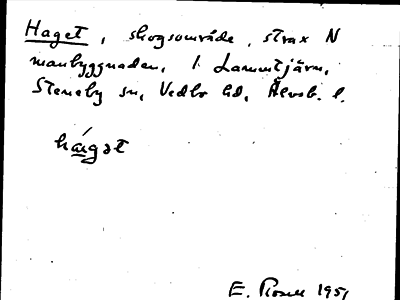 Haget, skogsområde, strax N
manbyggnaden, 1 Lammtjärn,
Steneby sn, Vedbo hd, Älvsb. l.
E. Rosell 1951